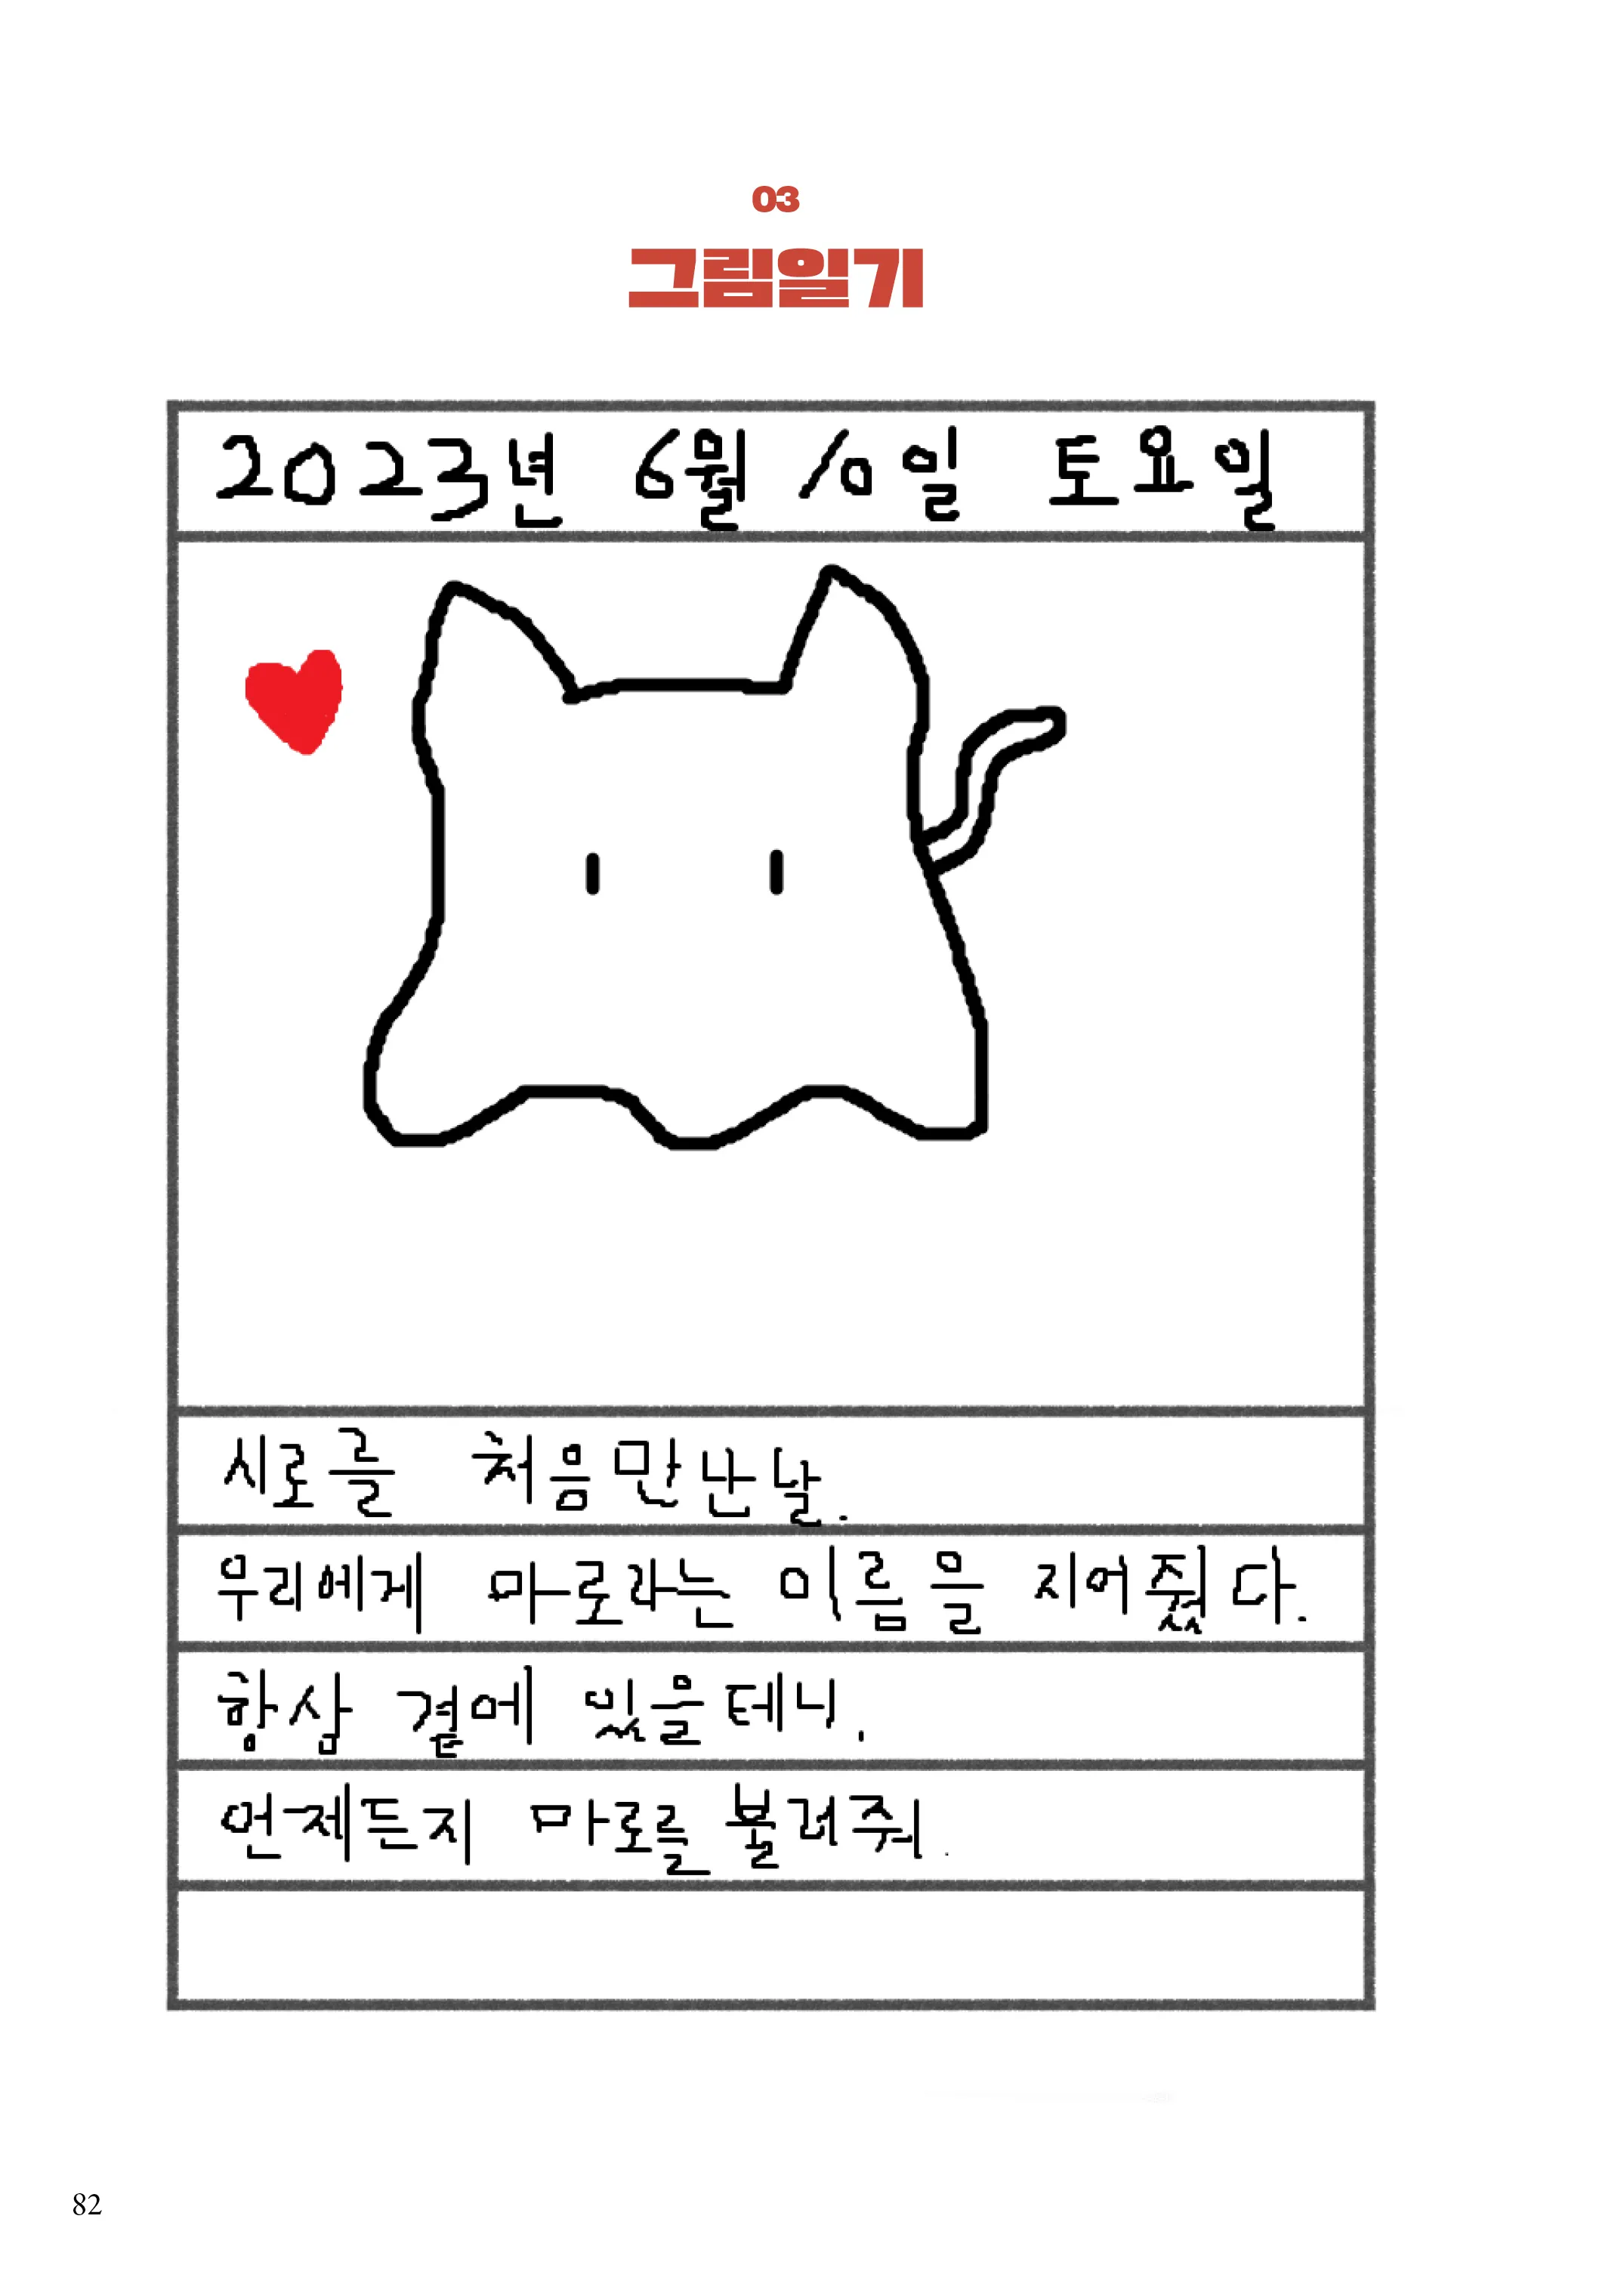 03
그림일기
2023년 6월 10일 토요일
시로를 처음만난날.
우리에게 마로라는 이름을 지어줬다.
항상 곁에 있을테니,
언제든지 마로를 불러줘.
82